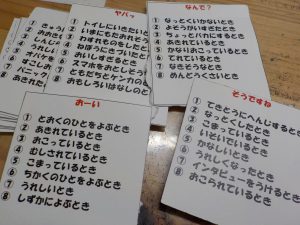 ヤバッ
① トイレにいきたいとき
② いまにもたおれそ
③ わすれものをした
④ ねぼうにきづいたと
⑤ おいしすぎるとき
⑥ スマホをおとしそう
⑦ ともだちとケンカの
⑧ おもしろいはなしのと
なんで？
① なっとくいかないとき
② よそうがいすぎたとき
③ ちょっとバカにするとき
④ あきれているとき
⑤ かなりおこっているとき
⑥ てれているとき
⑦ なきそうなとき
⑧ めんどうくさいとき
おーい
① とおくのひとをよぶとき
② あきれているとき
③ おこっているとき
④ むしされているとき
⑤ こまっているとき
⑥ ちかくのひとをよぶとき
⑦ うれしいとき
⑧ しずかによぶとき
そうですね
① てきとうにへんじする
② なっとくしたとき
③ こまっているとき
④ いそいでいるとき
⑤ かなしいとき
⑥ うれしくなったとき
⑦ インタビューをうけるとき
⑧ おこられているとき